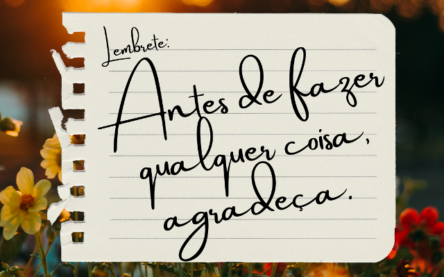 Lembrete:
Antes de fazer
qualquer coisa,
agradeça.